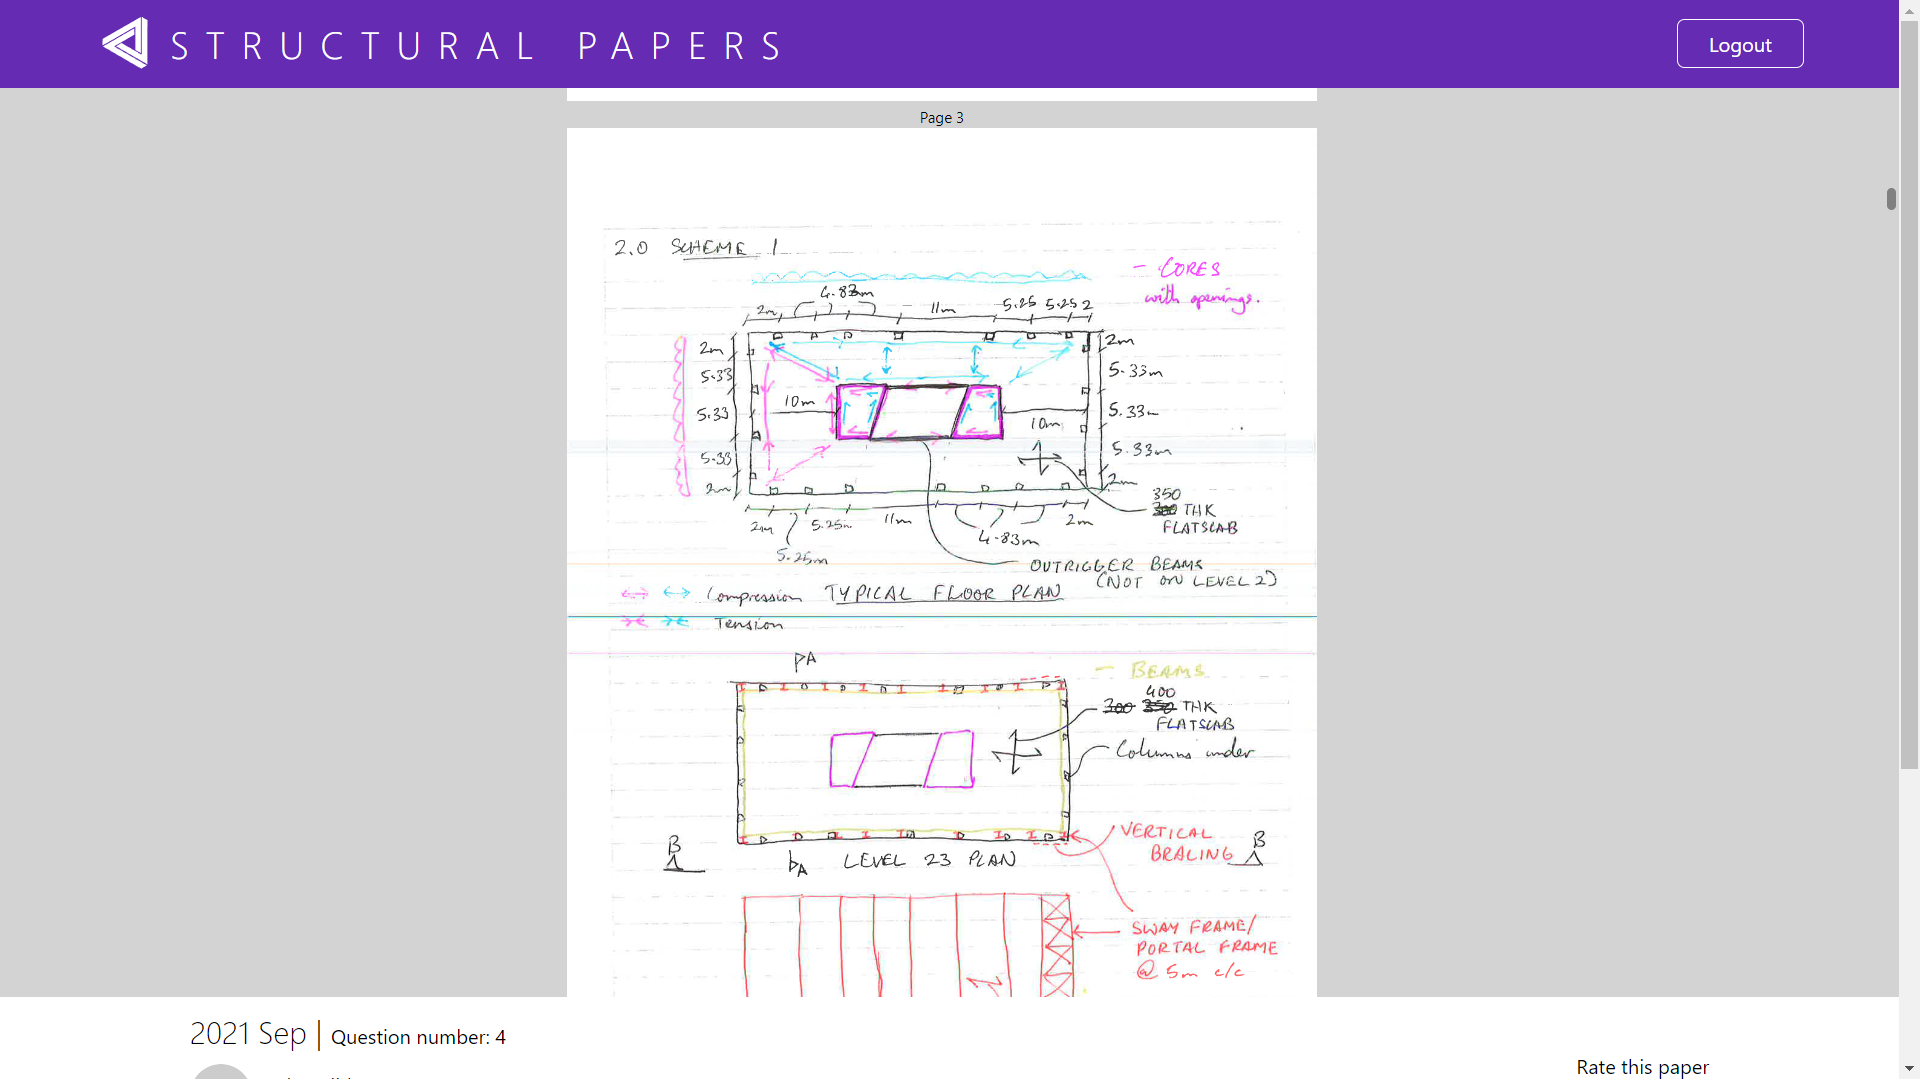 STRUCTURAL PAPERS
Logout
Page 3
2.0 SCHEME 1
- CORES
with openings.
4.83m
2m 11m 5.25 5.25 2
2m 2m
5.33 5.33m
10m
5.33 5.33m
10m
5.33 5.33m
2m 2m
350
THK
FLATSLAB
2m 5.25m 11m 2m
4.83m
5.25m
OUTRIGGER BEAMS
(NOT ON LEVEL 2)
Compression TYPICAL FLOOR PLAN
Tension
A
- BEAMS
400
300 350 THK
FLATSLAB
Columns under
VERTICAL
BRACING
B B
A LEVEL 23 PLAN
SWAY FRAME/
PORTAL FRAME
@ 5m c/c
2021 Sep | Question number: 4
Rate this paper